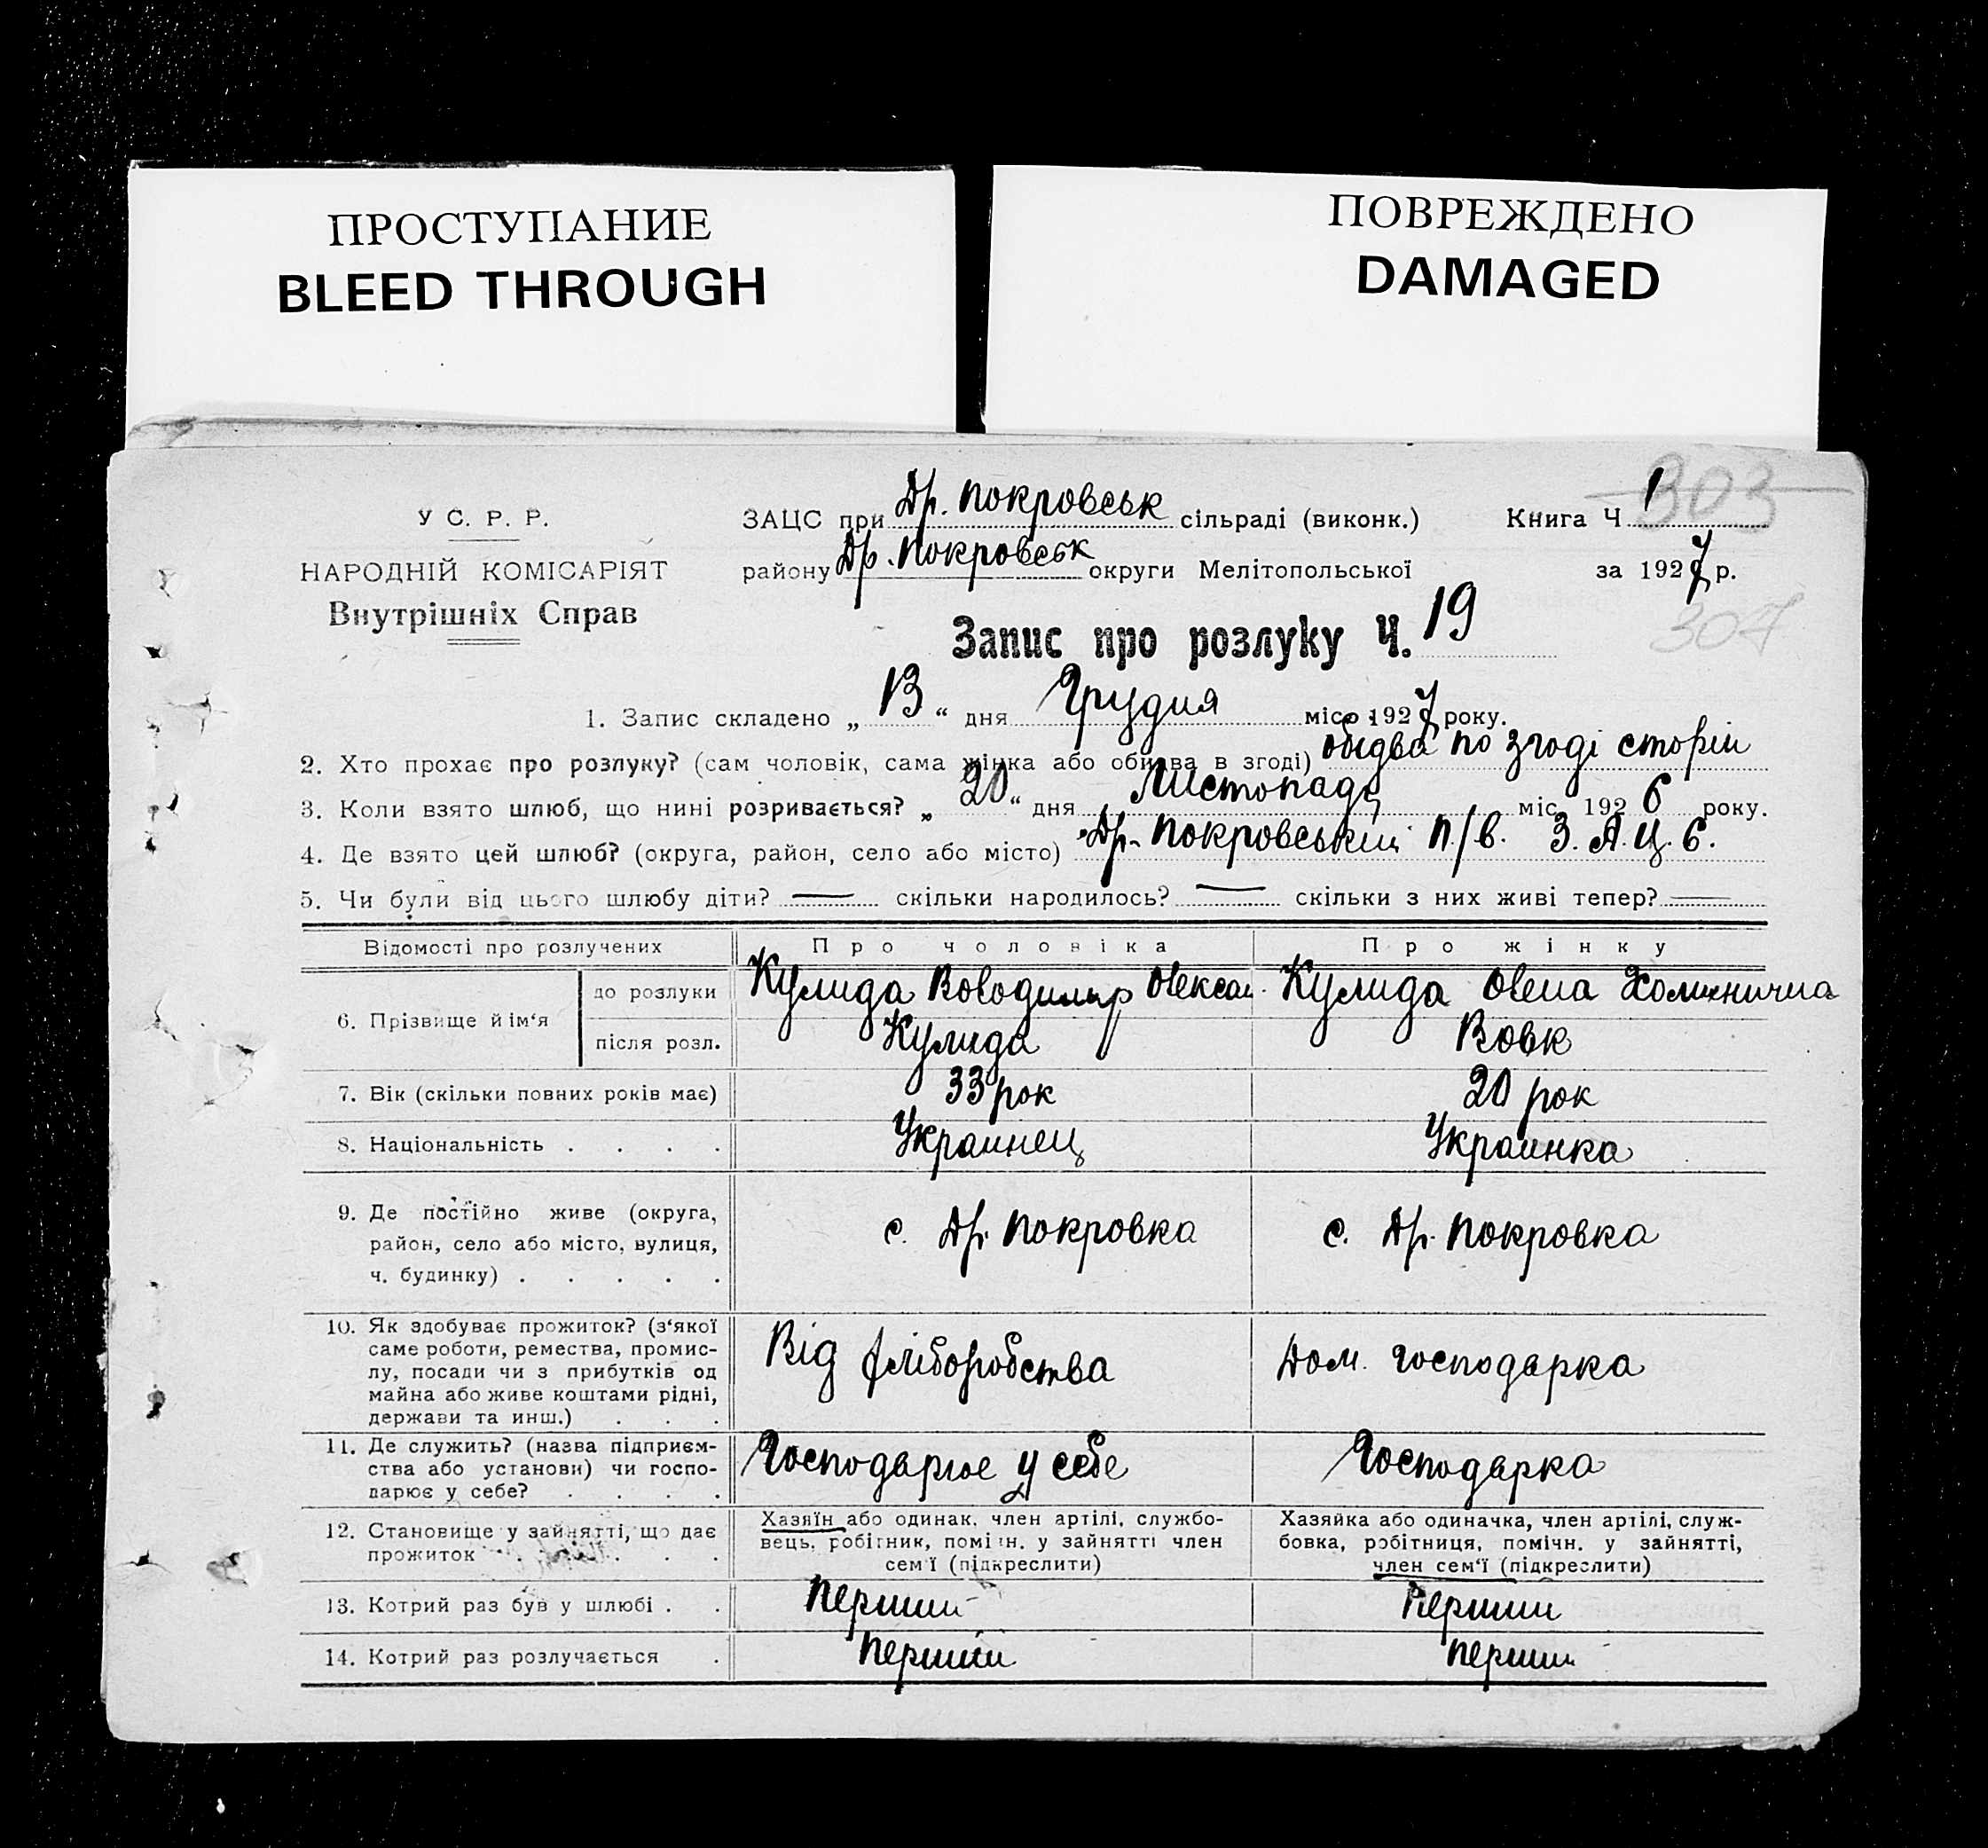 ПРОСТУПАНИЕ
BLEED THROUGH
ПОВРЕЖДЕНО
DAMAGED
У С. Р. Р.
НАРОДНІЙ КОМІСАРІЯТ
Внутрішніх Справ
ЗАЦС при Др. Покровськ сільраді (виконк.)
району Др. Покровськ округи Мелітопольської
Книга Ч 1
303
за 1927 р.
307
Запис про розлуку Ч. 19
1. Запис складено „ 13 “ дня Грудня місо 1927 року.
2. Хто прохає про розлуку? (сам чоловік, сама жінка або обидва в згоді) обидва по згоді сторін
3. Коли взято шлюб, що нині розривається? „ 20 “ дня Листопада міс. 1926 року.
4. Де взято цей шлюб? (округа, район, село або місто) Др. Покровський п/в. З. А. Ц. С.
5. Чи були від цього шлюбу діти? — скільки народилось? — скільки з них живі тепер? —
Відомості про розлучених Про чоловіка Про жінку
6. Прізвище й ім‘я
до розлуки Кулида Володимир Олексан. Кулида Олена
після розл. Кулида Вовк
7. Вік (скільки повних років має) 33 рок 20 рок
8. Національність . . . . Украинец Украинка
9. Де постійно живе (округа,
район, село або місто, вулиця,
ч. будинку) . . . . .
с. Др. Покровка с. Др. Покровка
10. Як здобуває прожиток? (з‘якої
саме роботи, ремества, промис-
лу, посади чи з прибутків од
майна або живе коштами рідні,
держави та инш.) . . .
Від хліборобства Дом. господарка
11. Де служить? (назва підприєм-
ства або установи) чи госпо-
дарює у себе? . . . .
Господарює у себе Господарка
12. Становище у зайнятті, що дає
прожиток . . .
Хазяїн або одинак, член артілі, службо-
вець, робітник, помічн. у зайнятті член
сем‘ї (підкреслити)
Хазяйка або одиначка, член артілі, служ-
бовка, робітниця, помічн. у зайнятті,
член сем‘ї (підкреслити)
13. Котрий раз був у шлюбі . . Перший Перший
14. Котрий раз розлучається . Перший Перший